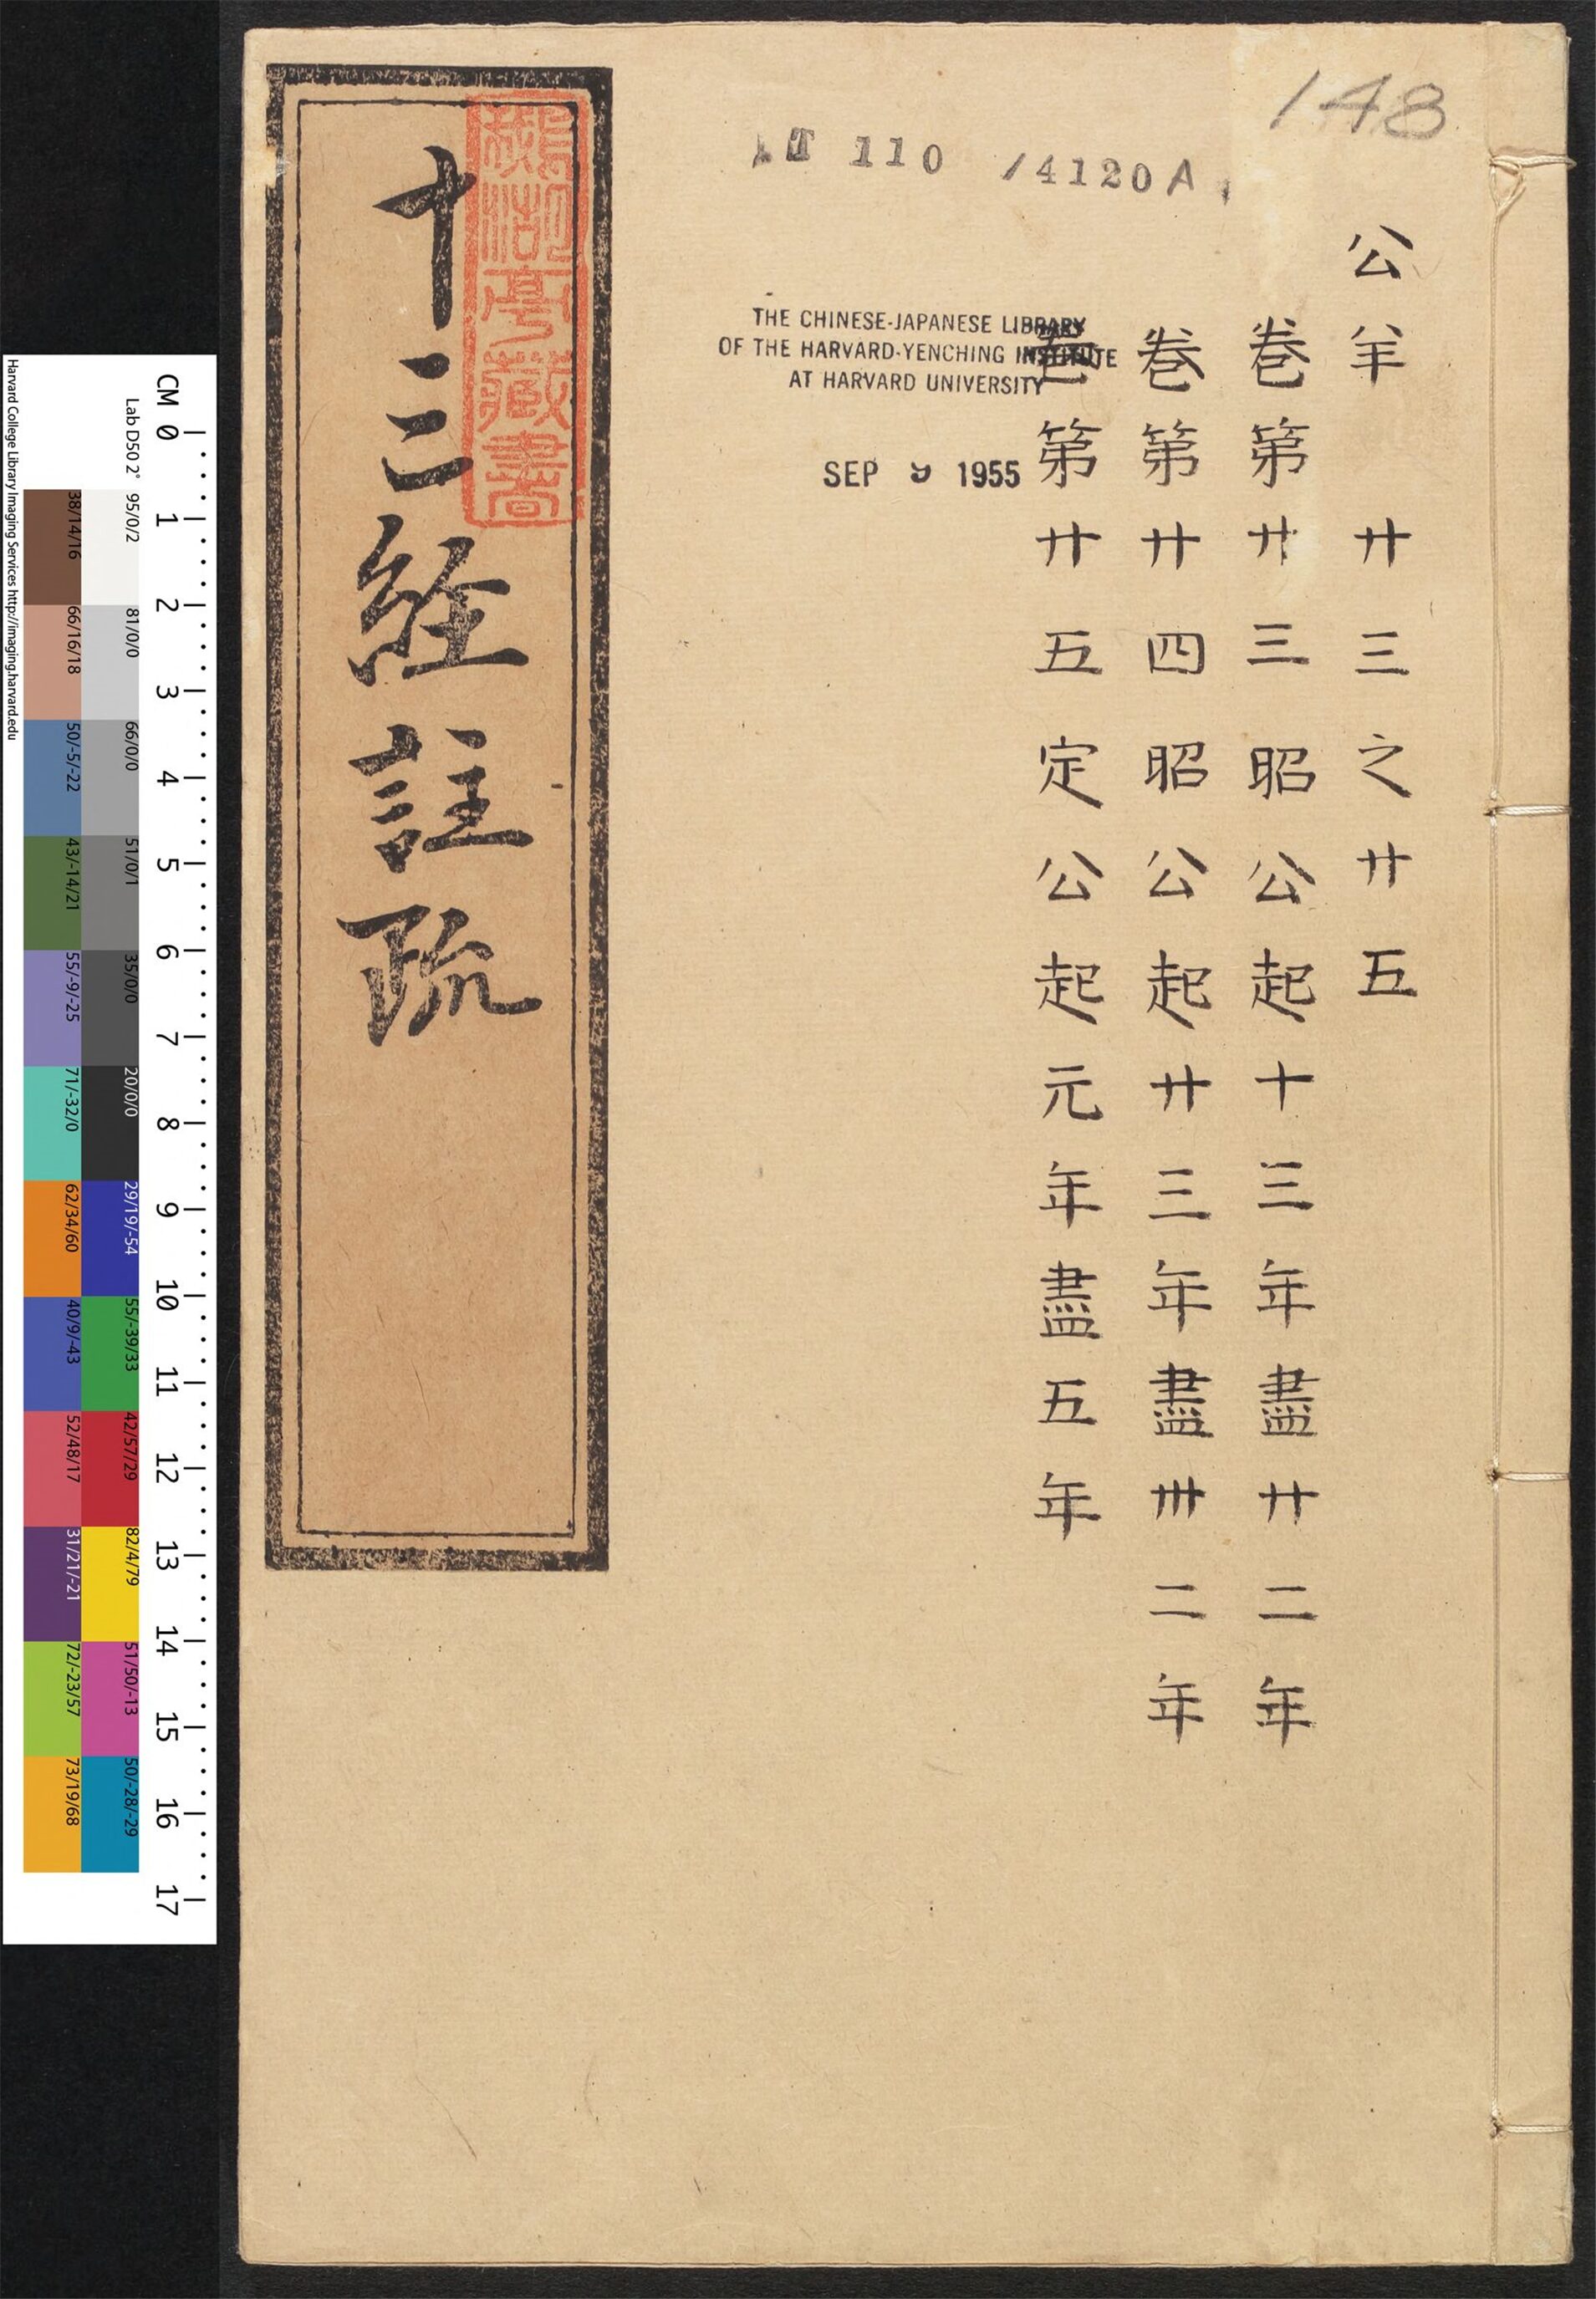 148
T 110 /4120A
公羊 廿三之廿五
卷第廿三昭公起十三年盡廿二年
卷第廿四昭公起廿三年盡卅二年
卷第廿五定公起元年盡五年
THE CHINESE-JAPANESE LIBRARY
OF THE HARVARD-YENCHING INSTITUTE
AT HARVARD UNIVERSITY
SEP 9 1955
十三経註疏
亭藏書
CM 0 1 2 3 4 5 6 7 8 9 10 11 12 13 14 15 16 17
Lab D50 2° 95/0/2 81/0/0 66/0/0 51/0/1 35/0/0 20/0/0 29/19/-54 55/-39/33 42/57/29 82/4/79 51/50/-13 50/-28/-29
38/14/16 66/16/18 50/-5/-22 43/-14/21 55/-9/-25 71/-32/0 62/34/60 40/9/-43 52/48/17 31/21/-21 72/-23/57 73/19/68
Harvard College Library Imaging Services http://imaging.harvard.edu